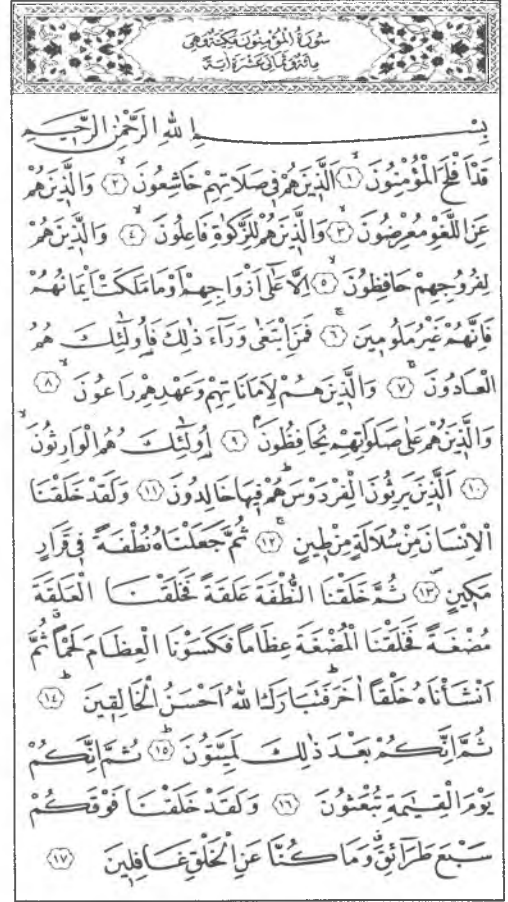 سُورَةُ الْمُؤْمِنُونَ مَكِّيَّةٌ وَهِىَ
مِائَةٌ وَثَمَانِىَ عَشْرَةَ اٰيَةً
بِسْمِ اللهِ الرَّحْمٰنِ الرَّحِيمِ
قَدْ اَفْلَحَ الْمُؤْمِنُونَ ﴿١﴾ اَلَّذِينَ هُمْ فِى صَلَاتِهِمْ خَاشِعُونَ ﴿٢﴾ وَالَّذِينَ هُمْ
عَنِ اللَّغْوِ مُعْرِضُونَ ﴿٣﴾ وَالَّذِينَ هُمْ لِلزَّكٰوةِ فَاعِلُونَ ﴿٤﴾ وَالَّذِينَ هُمْ
لِفُرُوجِهِمْ حَافِظُونَ ﴿٥﴾ اِلَّا عَلٰٓى اَزْوَاجِهِمْ اَوْ مَا مَلَكَتْ اَيْمَانُهُمْ
فَاِنَّهُمْ غَيْرُ مَلُومِينَ ﴿٦﴾ فَمَنِ ابْتَغٰى وَرَٓاءَ ذٰلِكَ فَاُولٰٓئِكَ هُمُ
الْعَادُونَ ﴿٧﴾ وَالَّذِينَ هُمْ لِاَمَانَاتِهِمْ وَعَهْدِهِمْ رَاعُونَ ﴿٨﴾
وَالَّذِينَ هُمْ عَلٰى صَلَوَاتِهِمْ يُحَافِظُونَ ﴿٩﴾ اُولٰٓئِكَ هُمُ الْوَارِثُونَ
﴿١٠﴾ اَلَّذِينَ يَرِثُونَ الْفِرْدَوْسَ هُمْ فِيهَا خَالِدُونَ ﴿١١﴾ وَلَقَدْ خَلَقْنَا
الْاِنْسَانَ مِنْ سُلَالَةٍ مِنْ طِينٍ ﴿١٢﴾ ثُمَّ جَعَلْنَاهُ نُطْفَةً فِى قَرَارٍ
مَكِينٍ ﴿١٣﴾ ثُمَّ خَلَقْنَا النُّطْفَةَ عَلَقَةً فَخَلَقْنَا الْعَلَقَةَ
مُضْغَةً فَخَلَقْنَا الْمُضْغَةَ عِظَاماً فَكَسَوْنَا الْعِظَامَ لَحْماً ثُمَّ
اَنْشَأْنَاهُ خَلْقاً اٰخَرَ فَتَبَارَكَ اللهُ اَحْسَنُ الْخَالِقِينَ ﴿١٤﴾
ثُمَّ اِنَّكُمْ بَعْدَ ذٰلِكَ لَمَيِّتُونَ ﴿١٥﴾ ثُمَّ اِنَّكُمْ
يَوْمَ الْقِيٰمَةِ تُبْعَثُونَ ﴿١٦﴾ وَلَقَدْ خَلَقْنَا فَوْقَكُمْ
سَبْعَ طَرَٓائِقَ وَمَا كُنَّا عَنِ الْخَلْقِ غَافِلِينَ ﴿١٧﴾